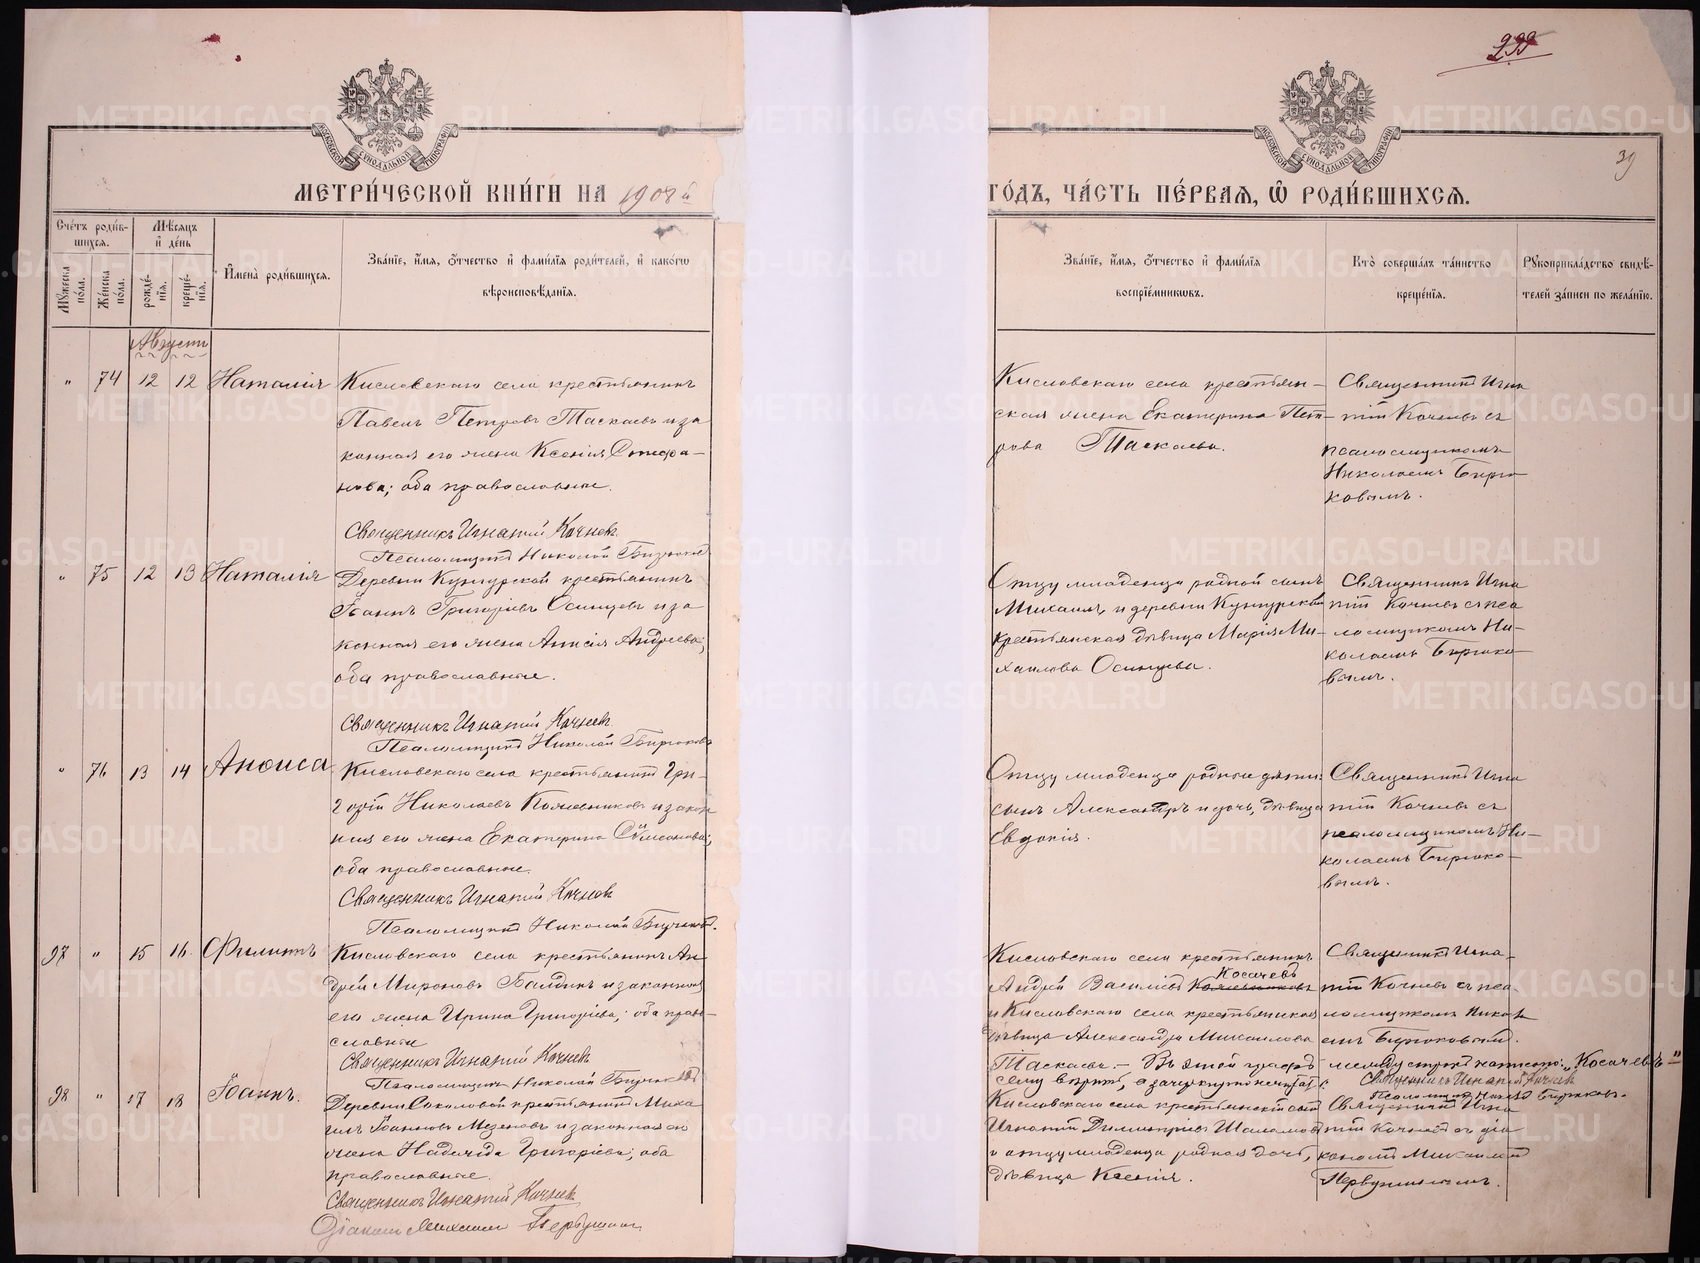 299
39
МЕТРИ́ЧЕСКОЙ КНИ́ГИ НА 1908й
ГО́ДЪ, ЧА́СТЬ ПЕ́РВАЯ, Ѽ РОДИ́ВШИХСЯ.
Сче́тъ роди́в-
шихся.
Му́жеска по́ла.
Же́нска по́ла.
Мѣ́сяцъ
и҆ де́нь
рожде́-
нїя.
креще́-
нїя.
И҆мена̀ роди́вшихся.
Зва́нїе, и҆́мя, ѻ҆́тчество и҆ фами́лїя роди́телей, и҆ како́гѡ
вѣроисповѣ́данїя.
Зва́нїе, и҆́мя, ѻ҆́тчество и҆ фами́лїя
воспрїе́мникѡвъ.
Кто̀ соверша́лъ та́инство
креще́нїя.
Рꙋкоприкла́дство свидѣ́-
телей за́писи по жела́нїю.
Августъ
" 74 12 12 Наталія
Кисловскаго села крестьянинъ
Павелъ Петровъ Таскаевъ и за
конная его жена Ксенія Стефа-
нова; оба православные.
Священникъ Игнатій Кочневъ
Псаломщикъ Николай Бирюковъ
Кисловскаго села крестьян-
ская жена Екатерина Пет-
рова Таскаева.
Священникъ Игна
тій Кочневъ съ
псаломщикомъ
Николаемъ Бирю-
ковымъ.
" 75 12 13 Наталія
Деревни Кунгурской крестьянинъ
Іоаннъ Григоріевъ Осинцевъ и за
конная его жена Анисія Андреева;
оба православные.
Священникъ Игнатій Кочневъ
Псаломщикъ Николай Бирюковъ
Отцу младенца родной сынъ
Михаилъ и деревни Кунгурской
крестьянская дѣвица Марія Ми-
хаилова Осинцева.
Священникъ Игна
тій Кочневъ съ пса
ломщикомъ Ни-
колаемъ Бирюко-
вымъ.
" 76 13 14 Анѳиса
Кисловскаго села крестьянинъ Гри-
горій Николаевъ Кожевниковъ и закон
ная его жена Екатерина
оба православные.
Священникъ Игнатій Кочневъ
Псаломщикъ Николай Бирюковъ.
Отцу младенца родные дѣти:
сынъ Александръ и дочь, дѣвица
Евдокія.
Священникъ Игна
тій Кочневъ съ
псаломщикомъ Ни-
колаемъ Бирюко-
вымъ.
97 " 15 16 Филиппъ
Кисловскаго села крестьянинъ Ан
дрей Мироновъ Балдинъ и законная
его жена Ирина Григоріева; оба право-
славные
Священникъ Игнатій Кочневъ
Псаломщикъ Николай Бирюковъ
Кисловскаго села крестьянинъ
Косачевъ
Андрей Василіевъ Кожевниковъ
и Кисловскаго села крестьянская
дѣвица Александра Михаилова
Таскаева. — Въ этой графѣ между строкъ написано: "Косачевъ"
сему вѣрить, а зачеркнутое не читать:
Священникъ Игнатій Кочневъ
Псаломщикъ Николай Бирюковъ.
Священникъ Игна-
тій Кочневъ съ пса
ломщикомъ Никола
емъ Бирюковымъ.
98 " 17 18 Іоаннъ.
Деревни Соколовой крестьянинъ Миха
илъ Іоанновъ Мезеновъ и законная его
жена Надежда Григоріева; оба
православные.
Священникъ Игнатій Кочневъ
Діаконъ Михаилъ Первушинъ
Кисловскаго села крестьянскій сынъ
Игнатій Димитріевъ Шаламовъ
и отцу младенца родная дочь,
дѣвица Ксенія.
Священникъ Игна
тій Кочневъ съ діа
кономъ Михаиломъ
Первушинымъ.
МОСКОВСКОЙ СѴНОДАЛЬНОЙ ТИПОГРАФІИ
МОСКОВСКОЙ СѴНОДАЛЬНОЙ ТИПОГРАФІИ
METRIKI.GASO-URAL.RU